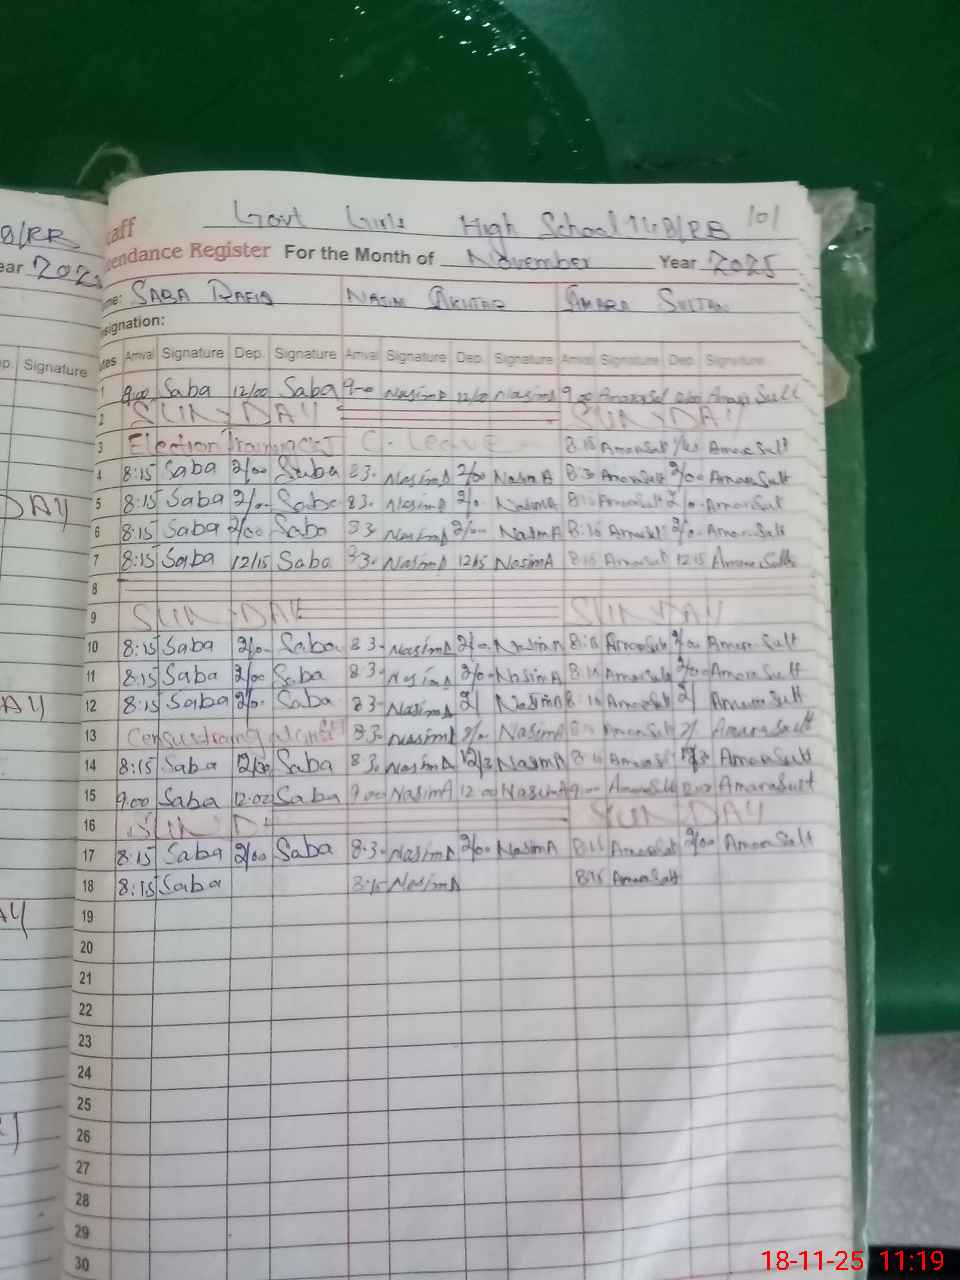 B/RR
ear 202
p. Signature
DAY
AY
AY
taff Govt Girls High School 148/RB 101
endance Register For the Month of November Year 2025
me: SABA RAFIQ NASIM AKHTAR AMARA SULTAN
signation:
tes Arrival Signature Dep. Signature Arrival Signature Dep. Signature Arrival Signature Dep. Signature
1 9:00 Saba 12/00 Saba 9-0 NasimA 12/00 NasimA 9:00 AmaraSult Amara Sult
2 SUNDAY SUNDAY
3 Election Training C. Leave 8:15 AmaraSult AmaraSult
4 8:15 Saba 2/00 Saba 83- NasimA 2/00 NasimA 83 AmaraSult 2/00 AmaraSult
5 8:15 Saba 2/0- Saba 83- NasimA 2/0- NasimA AmaraSult 2/0- AmaraSult
6 8:15 Saba 2/00 Saba 83- NasimA 2/0- NasimA 8:15 AmaraSult 2/0- AmaraSult
7 8:15 Saba 12/15 Saba 83- NasimA 12/15 NasimA 8:15 AmaraSult 12:15 Amara Sult
8
9 SUNDAY SUNDAY
10 8:15 Saba 2/0- Saba 83- NasimA 2/0- NasimA 8:15 AmaraSult 2/00 Amara Sult
11 8:15 Saba 2/00 Saba 83- NasimA 2/0- NasimA 8:15 AmaraSult 2/0- Amara Sult
12 8:15 Saba 2/0- Saba 83- NasimA 2/ NasimA 8:15 AmaraSult 2/ Amara Sult
13 83- NasimA 2/0- NasimA AmaraSult 2/ AmaraSult
14 8:15 Saba 12/30 Saba 83- NasimA 12/3 NasimA AmaraSult AmaraSult
15 9:00 Saba 12:00 Saba 9:00 NasimA 12:00 NasimA 9:- AmaraSult AmaraSult
16 SUN D SUNDAY
17 8:15 Saba 2/00 Saba 8:3- NasimA 2/00 NasimA 8:15 AmaraSult 2/00 AmaraSult
18 8:15 Saba 8:15 NasimA 8:15 AmaraSult
19
20
21
22
23
24
25
26
27
28
29
30
18-11-25 11:19